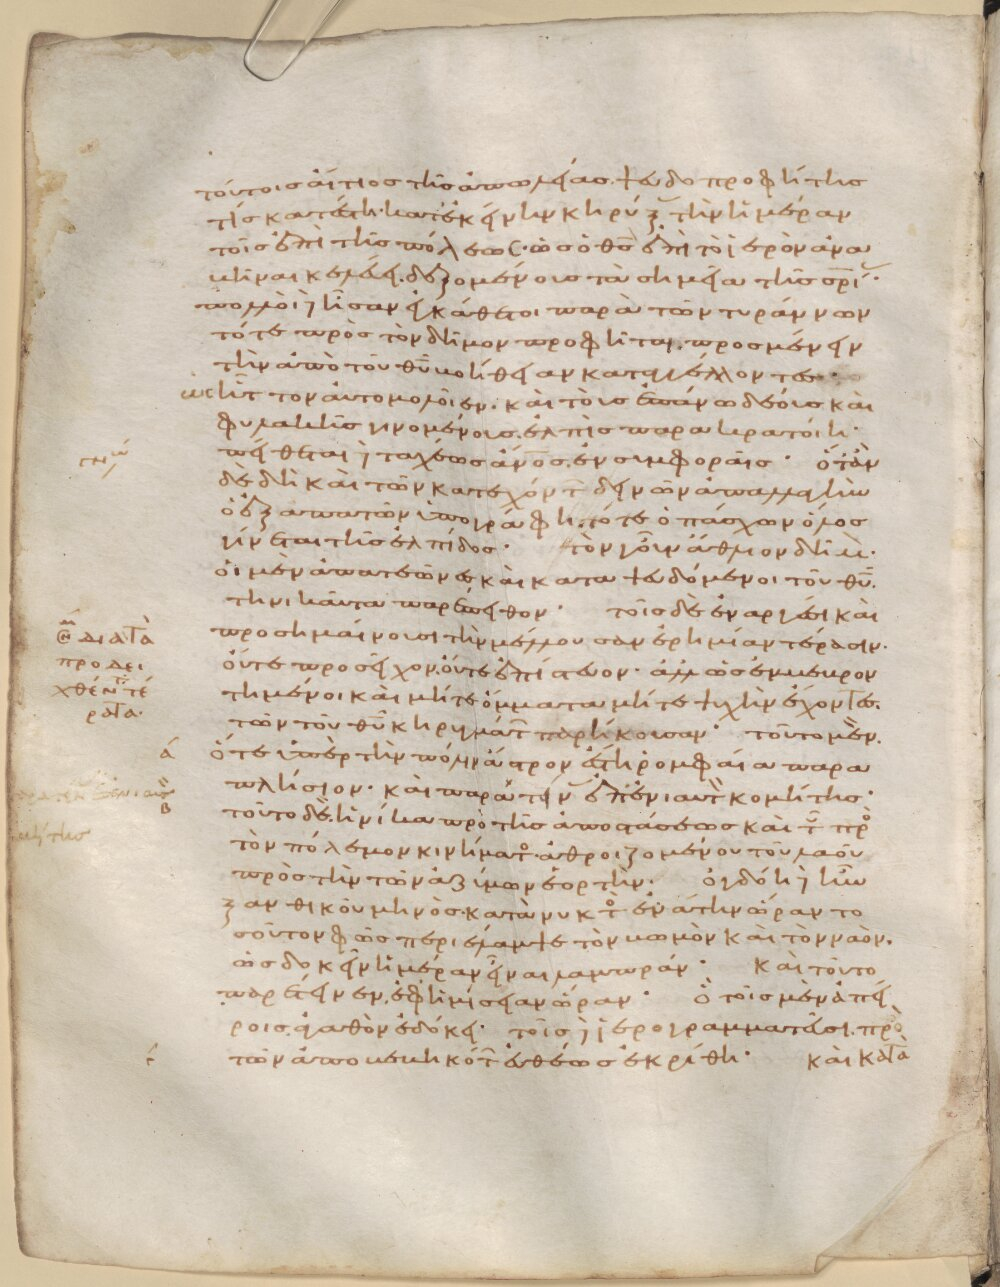 τούτοις αἴτιος τῆς ἀπωλείας. ψευδοπροφήτης
τίς κατέστη. κατ' ἐκείνην κηρύξ(ας) τὴν ἡμέραν
τοῖς ἐπὶ τῆς πόλεως. ὡς ὁ θς ἐπὶ τὸ ἱερὸν ἀνα
βῆναι κελεύει. δεξομένοις τὰ σημεῖα τῆς σρί(ας)·
πολλοὶ δ' ἦσαν ἐγκάθετοι παρὰ τῶν τυράννων
τότε πρὸς τὸν δῆμον προφῆται. προσμένειν
τὴν ἀπὸ τοῦ θυ βοήθειαν καταγγέλλοντες·
ὡς ἧττον αὐτομολοῖεν. καὶ τοῖς ἐπάνω δέοις καὶ
φυλακῆς γινομένοις. ἐλπὶς παρακρατοίη·
πείθεται δ' ταχέως ἄνος. ἐν συμφοραῖς· ὅταν
δὲ δὴ καὶ τῶν κατεχόντ(ων) δεινῶν ἀπαλλαγὴν
ὁ ἐξαπατῶν ὑπογράφη. τότε ὁ πάσχων ὅλος
γίνεται τῆς ἐλπίδος· τὸν γοῦν ἄθλιον δῆμ(ον).
οἱ μὲν ἀπατεῶνες καὶ καταψευδόμενοι τοῦ θυ.
τηνικαῦτα παρέπειθον· τοῖς δὲ ἐναργέσι καὶ
προσημαίνουσι τὴν μέλλουσαν ἐρημίαν τέρασιν.
οὔτε προσεῖχον. οὔτε ἐπίστευον· ἀλλ' ὡς ἐμβεβρον
τημένοι καὶ μήτε ὄμματα μήτε ψυχὴν ἔχοντες.
τῶν τοῦ θυ κηρυγμάτ(ων) παρήκουσαν· τοῦτο μὲν.
ὅτε ὑπὲρ τὴν πόλιν ἄστρον ἔστη ῥομφαία παρα
πλήσιον· καὶ παρατείν(ας) ἐπ' ἐνιαυτ(ὸν) κομήτης·
τοῦτο δὲ. ἡνίκα πρὸ τῆς ἀποστάσεως καὶ τ(οῦ) πρὸ(ς)
τὸν πόλεμον κινήματο(ς). ἀθροιζομένου τοῦ λαοῦ
πρὸς τὴν τῶν ἀζύμων ἑορτὴν· ὀγδόη δ' ἦν
ξανθικοῦ μηνὸς. κατὰ νυκτὸ(ς) ἐνάτην ὥραν το
σοῦτον φῶς περιέλαμψε τὸν βωμὸν καὶ τὸν ναὸν.
ὡς δοκεῖν ἡμέραν εἶναι λαμπράν· καὶ τοῦτο
παρέτεινεν. ἐφ' ἡμίσειαν ὥραν· ὃ τοῖς μὲν ἀπεί
ροις. ἀγαθὸν ἐδόκει· τοῖς δ' ἱερογραμματέσι. πρὸ(ς)
τῶν ἀποβεβηκότ(ων) εὐθέως ἐκρίθη· καὶ κατὰ
διατὰ
προδει
χθέντ(α) τέ
ρατα·
α
β